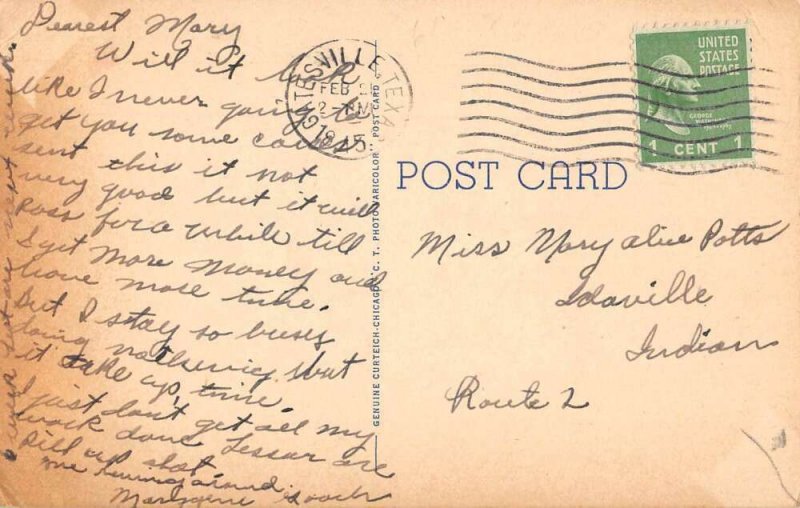 Dearest Mary
Will it look
like I never going to
get you some cards
sent this it not
very good but it will
Pass for a while till
I get more money and
have more time.
but I stay so busy
doing nothing but
it take up time
I just don't get all my
work done
around
GATESVILLE, TEXAS
FEB
PM
UNITED
STATES
POSTAGE
GEORGE
1 CENT 1
POST CARD
GENUINE CURTEICH-CHICAGO "C. T. PHOTO-VARICOLOR" POST CARD
Miss Mary alice Potts
Idaville
Indiana
Route 2